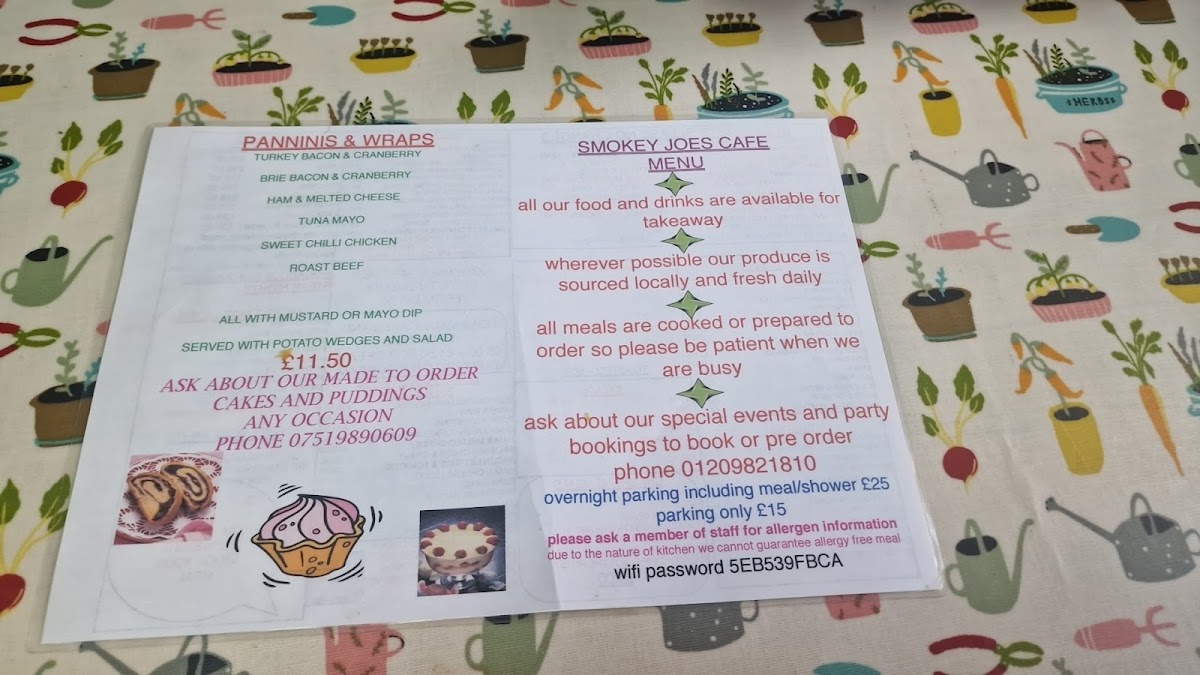 PANNINIS & WRAPS
TURKEY BACON & CRANBERRY
BRIE BACON & CRANBERRY
HAM & MELTED CHEESE
TUNA MAYO
SWEET CHILLI CHICKEN
ROAST BEEF
ALL WITH MUSTARD OR MAYO DIP
SERVED WITH POTATO WEDGES AND SALAD
£11.50
ASK ABOUT OUR MADE TO ORDER
CAKES AND PUDDINGS
ANY OCCASION
PHONE 07519890609
SMOKEY JOES CAFE
MENU
all our food and drinks are available for
takeaway
wherever possible our produce is
sourced locally and fresh daily
all meals are cooked or prepared to
order so please be patient when we
are busy
ask about our special events and party
bookings to book or pre order
phone 01209821810
overnight parking including meal/shower £25
parking only £15
please ask a member of staff for allergen information
due to the nature of kitchen we cannot guarantee allergy free meal
wifi password 5EB539FBCA
HERBS